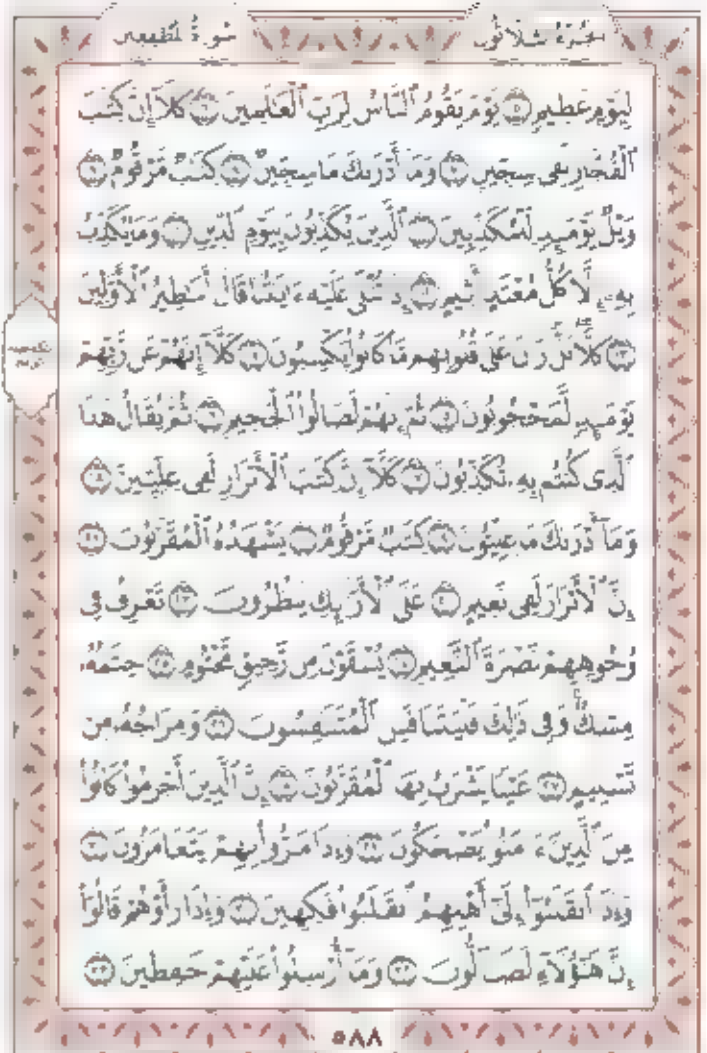 الجزء الثلاثون سورة المطففين
لِيَوْمٍ عَظِيمٍ ٥ يَوْمَ يَقُومُ ٱلنَّاسُ لِرَبِّ ٱلْعَٰلَمِينَ ٦ كَلَّآ إِنَّ كِتَٰبَ
ٱلْفُجَّارِ لَفِى سِجِّينٍ ٧ وَمَآ أَدْرَىٰكَ مَا سِجِّينٌ ٨ كِتَٰبٌ مَّرْقُومٌ ٩
وَيْلٌ يَوْمَئِذٍ لِّلْمُكَذِّبِينَ ١٠ ٱلَّذِينَ يُكَذِّبُونَ بِيَوْمِ ٱلدِّينِ ١١ وَمَا يُكَذِّبُ
بِهِۦٓ إِلَّا كُلُّ مُعْتَدٍ أَثِيمٍ ١٢ إِذَا تُتْلَىٰ عَلَيْهِ ءَايَٰتُنَا قَالَ أَسَٰطِيرُ ٱلْأَوَّلِينَ
١٣ كَلَّا ۖ بَلْ ۜ رَانَ عَلَىٰ قُلُوبِهِم مَّا كَانُوا۟ يَكْسِبُونَ ١٤ كَلَّآ إِنَّهُمْ عَن رَّبِّهِمْ
يَوْمَئِذٍ لَّمَحْجُوبُونَ ١٥ ثُمَّ إِنَّهُمْ لَصَالُوا۟ ٱلْجَحِيمِ ١٦ ثُمَّ يُقَالُ هَٰذَا
ٱلَّذِى كُنتُم بِهِۦ تُكَذِّبُونَ ١٧ كَلَّآ إِنَّ كِتَٰبَ ٱلْأَبْرَارِ لَفِى عِلِّيِّينَ ١٨
وَمَآ أَدْرَىٰكَ مَا عِلِّيُّونَ ١٩ كِتَٰبٌ مَّرْقُومٌ ٢٠ يَشْهَدُهُ ٱلْمُقَرَّبُونَ ٢١
إِنَّ ٱلْأَبْرَارَ لَفِى نَعِيمٍ ٢٢ عَلَى ٱلْأَرَآئِكِ يَنظُرُونَ ٢٣ تَعْرِفُ فِى
وُجُوهِهِمْ نَضْرَةَ ٱلنَّعِيمِ ٢٤ يُسْقَوْنَ مِن رَّحِيقٍ مَّخْتُومٍ ٢٥ خِتَٰمُهُۥ
مِسْكٌ ۚ وَفِى ذَٰلِكَ فَلْيَتَنَافَسِ ٱلْمُتَنَٰفِسُونَ ٢٦ وَمِزَاجُهُۥ مِن
تَسْنِيمٍ ٢٧ عَيْنًا يَشْرَبُ بِهَا ٱلْمُقَرَّبُونَ ٢٨ إِنَّ ٱلَّذِينَ أَجْرَمُوا۟ كَانُوا۟
مِنَ ٱلَّذِينَ ءَامَنُوا۟ يَضْحَكُونَ ٢٩ وَإِذَا مَرُّوا۟ بِهِمْ يَتَغَامَزُونَ ٣٠
وَإِذَا ٱنقَلَبُوٓا۟ إِلَىٰٓ أَهْلِهِمُ ٱنقَلَبُوا۟ فَكِهِينَ ٣١ وَإِذَا رَأَوْهُمْ قَالُوٓا۟
إِنَّ هَٰٓؤُلَآءِ لَضَآلُّونَ ٣٢ وَمَآ أُرْسِلُوا۟ عَلَيْهِمْ حَٰفِظِينَ ٣٣
٥٨٨